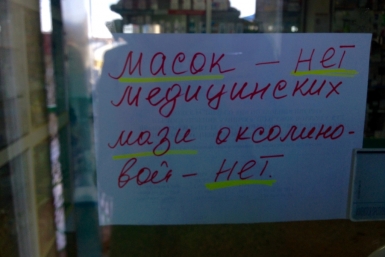 масок – нет
медицинских
мази оксолино-
вой – нет.